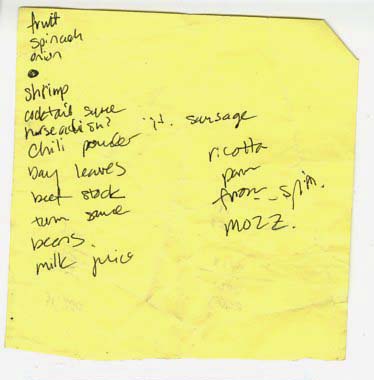 fruit
spinach
onion
shrimp
cocktail sauce
horseradish?
chili powder
bay leaves
beef stock
tom sauce
beans.
milk juice
it. sausage
ricotta
parm
froz. spin.
mozz.